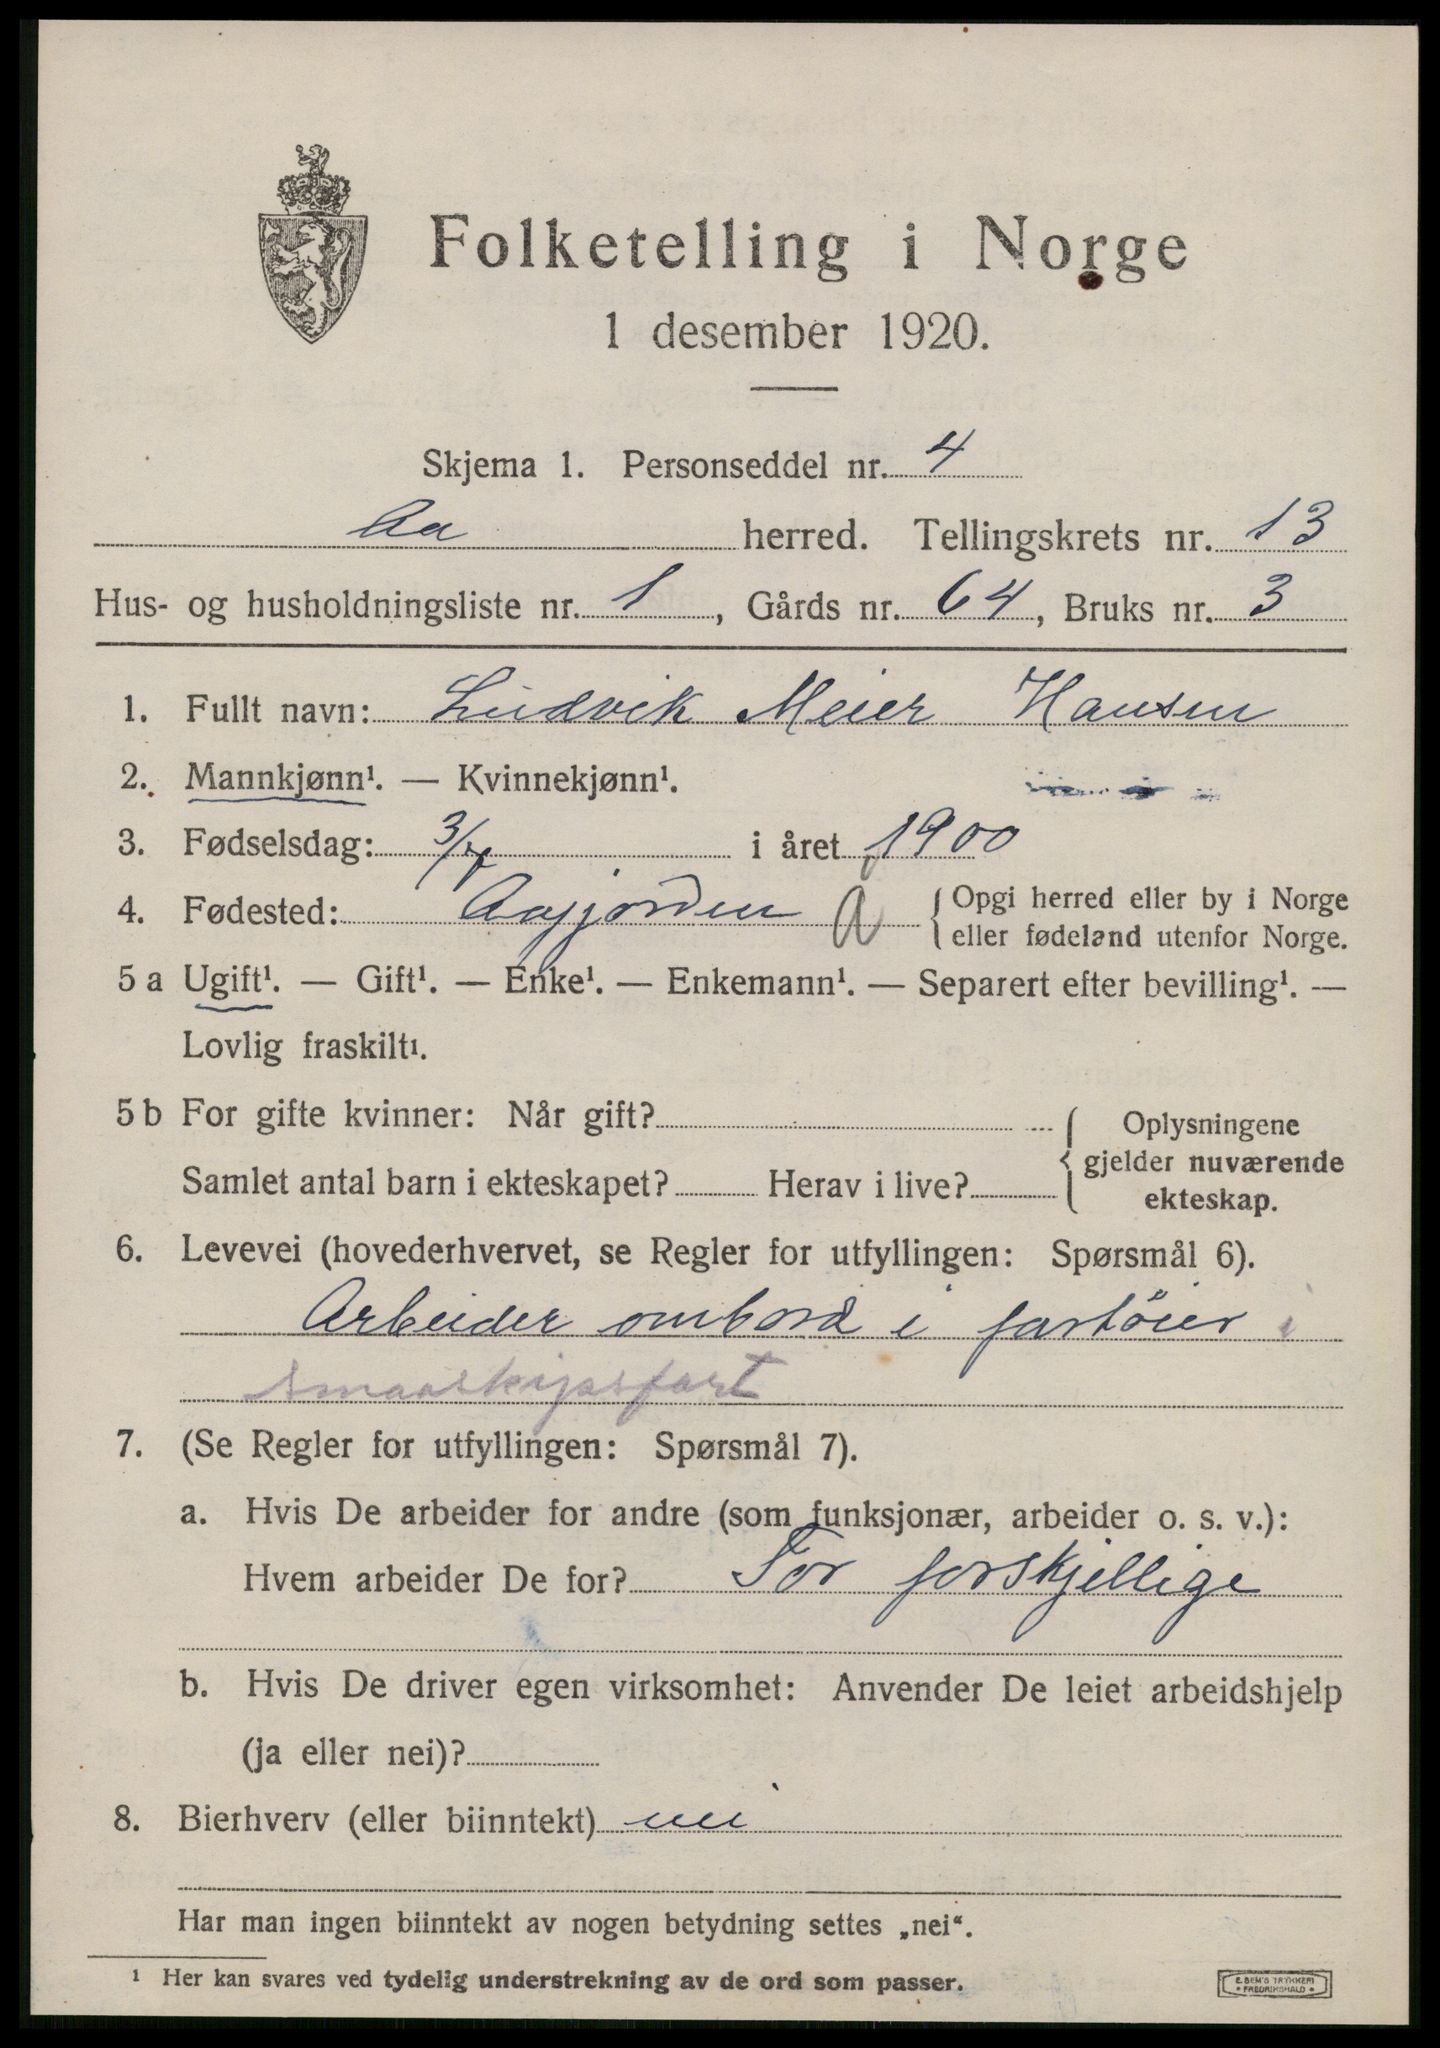 Folketelling i Norge
1 desember 1920.
Skjema 1. Personseddel nr. 4
Aa herred. Tellingskrets nr. 13
Hus- og husholdningsliste nr. 1, Gårds nr. 64, Bruks nr. 3
1. Fullt navn: Ludvik Meier Hansen
2. Mannkjønn¹. — Kvinnekjønn¹.
3. Fødselsdag: 3/4 i året 1900
4. Fødested: Aafjorden a { Opgi herred eller by i Norge
eller fødeland utenfor Norge.
5 a Ugift¹. — Gift¹. — Enke¹. — Enkemann¹. — Separert efter bevilling¹. —
Lovlig fraskilt¹.
5 b For gifte kvinner: Når gift?
Samlet antal barn i ekteskapet? Herav i live?
Oplysningene
gjelder nuværende
ekteskap.
6. Levevei (hovederhvervet, se Regler for utfyllingen: Spørsmål 6).
Arbeider ombord i fartöier i
smaaskipsfart
7. (Se Regler for utfyllingen: Spørsmål 7).
a. Hvis De arbeider for andre (som funksjonær, arbeider o. s. v.):
Hvem arbeider De for? For forskjellige
b. Hvis De driver egen virksomhet: Anvender De leiet arbeidshjelp
(ja eller nei)?
8. Bierhverv (eller biinntekt) nei
Har man ingen biinntekt av nogen betydning settes „nei“.
¹ Her kan svares ved tydelig understrekning av de ord som passer.
E. SEM'S TRYKKERI
• FREDRIKSHALD •